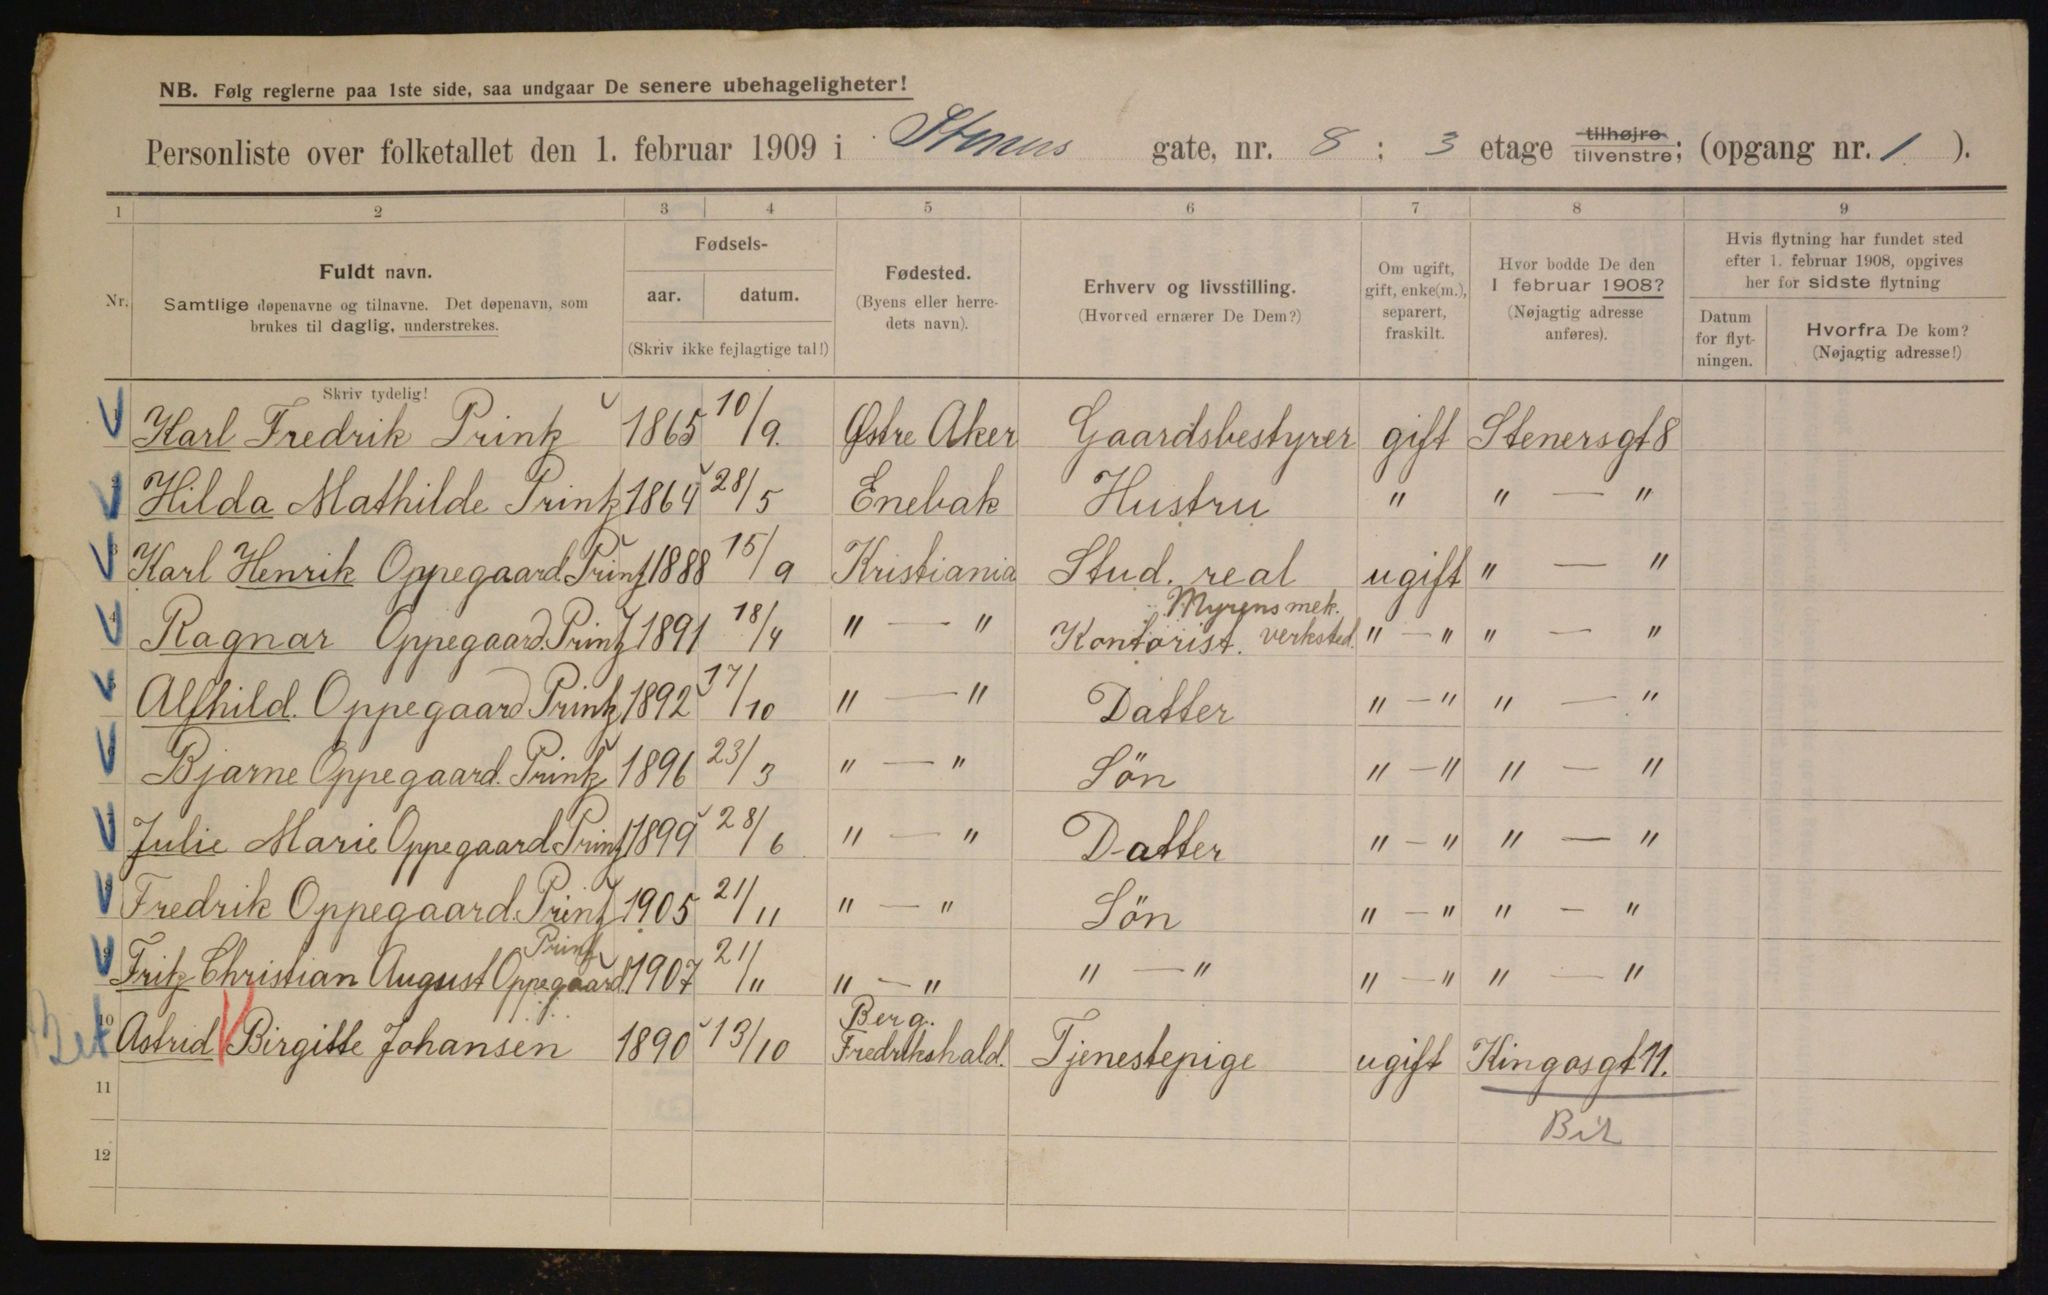 NB. Følg reglerne paa 1ste side, saa undgaar De senere ubehageligheter!
Personliste over folketallet den 1. februar 1909 i Steners gate, nr. 8 ; 3 etage tilhøjre tilvenstre; (opgang nr. 1 ).
1 2 3 4 5 6 7 8 9
Nr.
Fuldt navn.
Samtlige døpenavne og tilnavne. Det døpenavn, som
brukes til daglig, understrekes.
Fødsels-
aar. datum.
(Skriv ikke fejlagtige tal!)
Fødested.
(Byens eller herre-
dets navn).
Erhverv og livsstilling.
(Hvorved ernærer De Dem?)
Om ugift,
gift, enke(m.),
separert,
fraskilt.
Hvor bodde De den
1 februar 1908?
(Nøjagtig adresse
anføres).
Hvis flytning har fundet sted
efter 1. februar 1908, opgives
her for sidste flytning
Datum
for flyt-
ningen.
Hvorfra De kom?
(Nøjagtig adresse!)
Skriv tydelig!
1 Karl Fredrik Printz 1865 10/9. Østre Aker Gaardsbestyrer gift Stenersgt 8
2 Hilda Mathilde Printz 1864 28/5 Enebak Hustru " " — "
3 Karl Henrik Oppegaard Printz 1888 15/9 Kristiania Stud. real ugift " — "
4 Ragnar Oppegaard. Printz 1891 18/4 " — " Kontorist. Myrens mek. verksted. " — " " — "
5 Alfhild. Oppegaard Printz 1892 17/10 " — " Datter " — " " — "
6 Bjarne Oppegaard. Printz 1896 23/3 " — " Søn " — " " — "
7 Julie Marie Oppegaard Printz 1899 28/6 " — " Datter " — " " — "
8 Fredrik Oppegaard. Printz 1905 21/11 " — " Søn " — " " — "
9 Fritz Christian August Oppegaard. Printz 1907 21/11 " — " " — " " — " " — "
10 Astrid Birgitte Johansen 1890 13/10 Berg. Fredrikshald. Tjenestepige ugift Kingosgt 11.
11
12